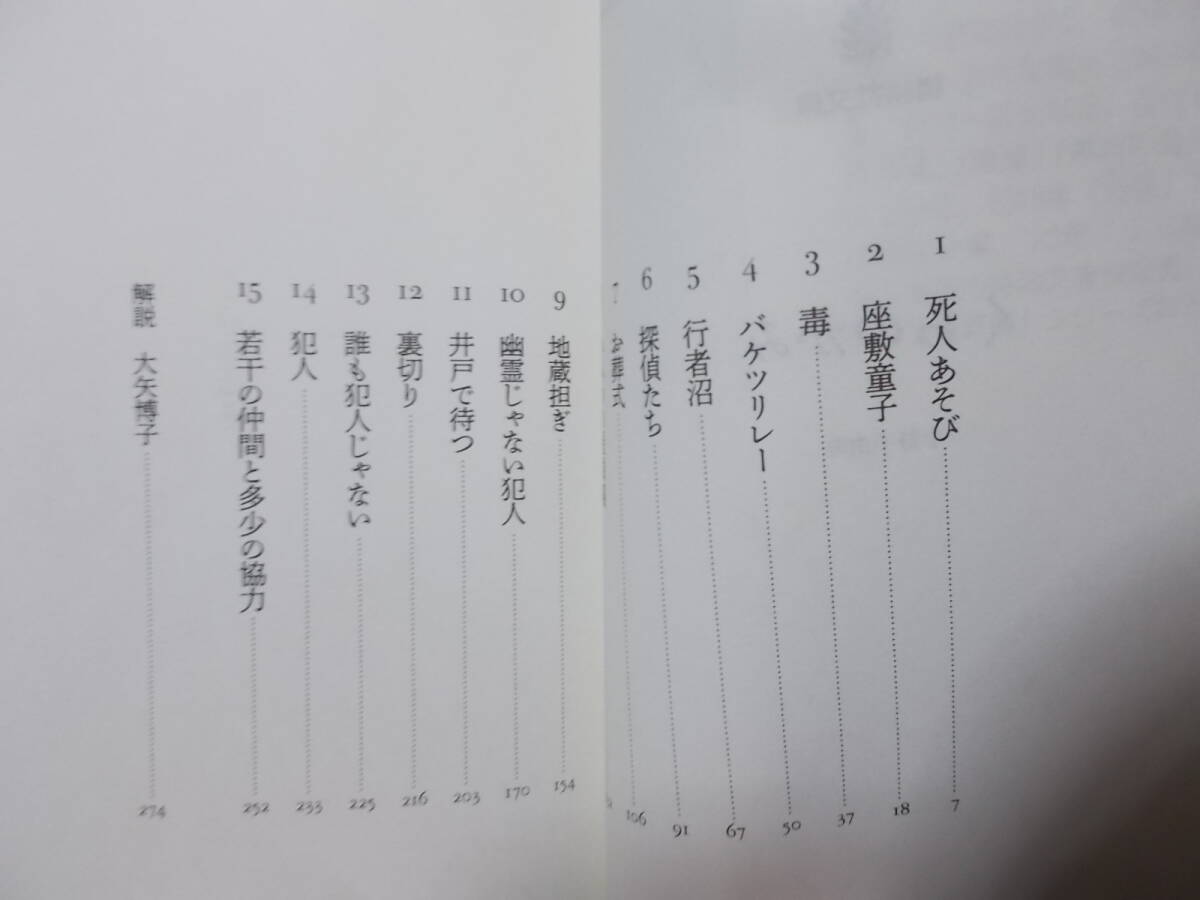 1 死人あそび 7
2 座敷童子 18
3 毒 37
4 バケツリレー 50
5 行者沼 67
6 探偵たち 91
7 お葬式 106
9 地蔵担ぎ 154
10 幽霊じゃない犯人 170
11 井戸で待つ 203
12 裏切り 216
13 誰も犯人じゃない 225
14 犯人 233
15 若干の仲間と多少の協力 252
解説 大矢博子 274